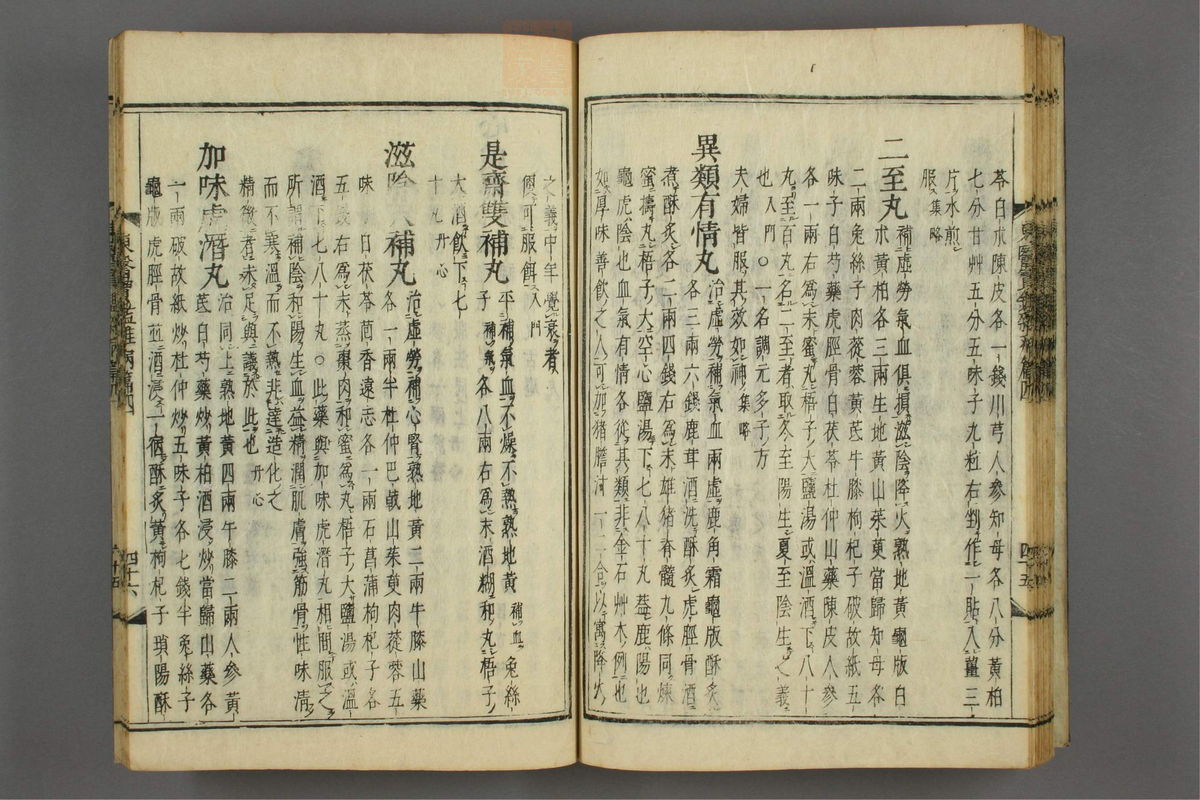 芩白朮陳皮各一錢川芎人參知母各八分黃柏
七分甘艸五分五味子九粒右剉作一貼入薑三
片水煎服集略
二至丸 補虛勞氣血俱損滋陰降火熟地黃龜版白
朮黃柏各三兩生地黃山茱萸當歸知母各
二兩兔絲子肉蓯蓉黃芪牛膝枸杞子破故紙五
味子白芍藥虎脛骨白茯苓杜仲山藥陳皮人參
各一兩右爲末蜜丸梧子大鹽湯或溫酒下八十
丸至百丸名二至者取冬至陽生夏至陰生之義
也入門○一名調元多子方
夫婦皆服其效如神集略
異類有情丸 治虛勞補氣血兩虛鹿角霜龜版酥炙
各三兩六錢鹿茸酒洗酥炙虎脛骨酒
煮酥炙各二兩四錢右爲末雄猪脊髓九條同煉
蜜擣丸梧子大空心鹽湯下七八十丸蓋鹿陽也
龜虎陰也血氣有情各從其類非金石艸木例也
如厚味善飮之人可加猪膽汁一二合以寓降火
之義中年覺衰者
便可服餌入門
是齋雙補丸 平補氣血不燥不熱熟地黃補血兔絲
子補氣各八兩右爲末酒糊和丸梧子
大酒飮下七
十丸丹心
滋陰大補丸 治虛勞補心腎熟地黃二兩牛膝山藥
各一兩半杜仲巴戟山茱萸肉蓯蓉五
味子白茯苓茴香遠志各一兩石菖蒲枸杞子各
五錢右爲末蒸棗肉和蜜爲丸梧子大鹽湯或溫
酒下七八十丸○此藥與加味虎潛丸相間服之
所謂補陰和陽生血益精潤肌膚強筋骨性味淸
而不寒溫而不熱非達造化之
精微者未足與議於此也丹心
加味虎潛丸 治同上熟地黃四兩牛膝二兩人參黃
芪白芍藥炒黃柏酒浸炒當歸山藥各
一兩破故紙炒杜仲炒五味子各七錢半兔絲子
龜版虎脛骨並酒浸一宿酥炙黃枸杞子瑣陽酥